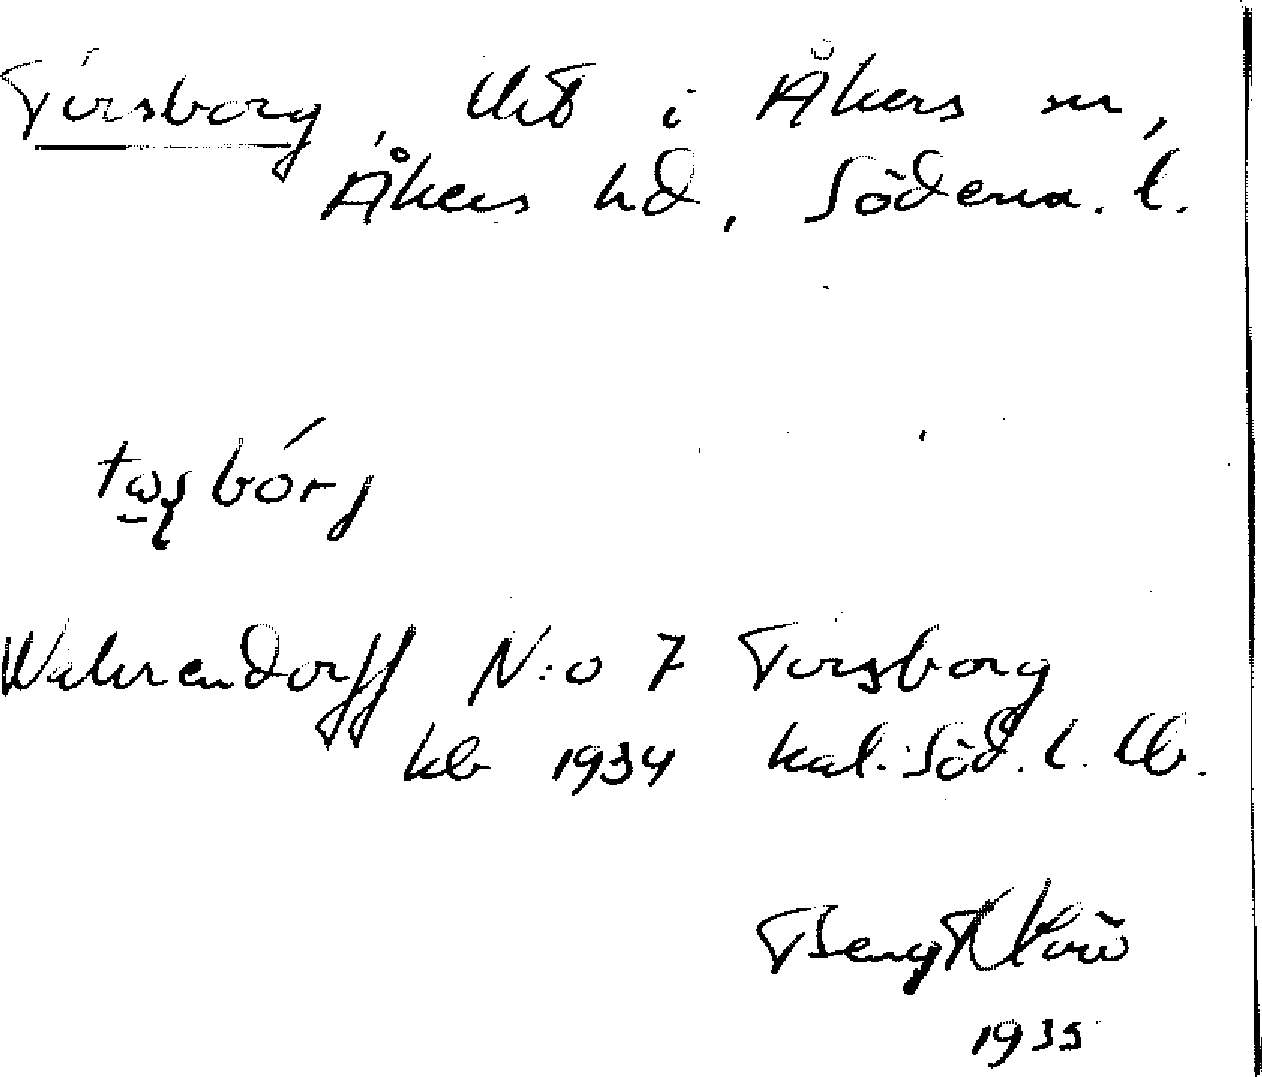 Torsborg, lht i Åkers sn,
Åkers hd, Söderm. l.
bórj
Wahrendorff N:o 7 Torsborg
kb 1934 kal. Söd. l. lb.
Bengt
1935